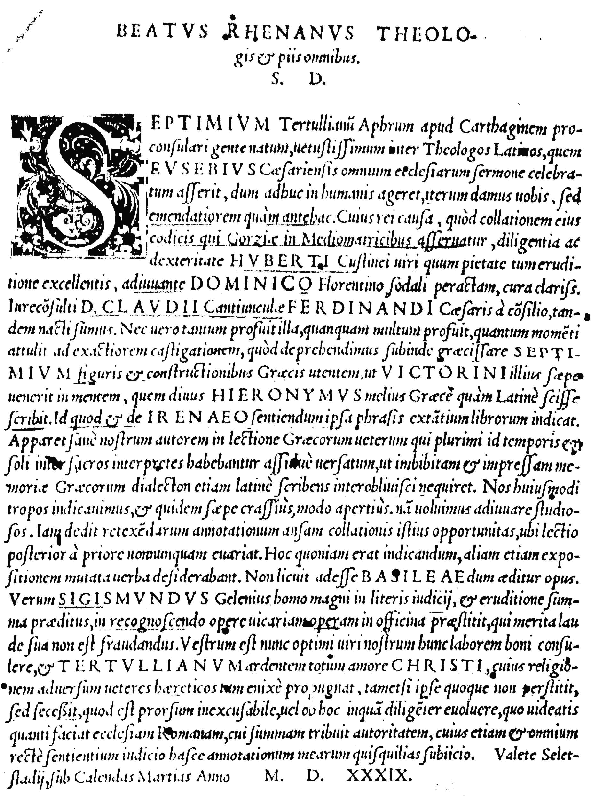 BEATVS RHENANVS THEOLO-
gis & piis omnibus.
S. D.
SEPTIMIVM Tertullianũ Aphrum apud Carthaginem pro-
consulari gente natum, uetustissimum inter Theologos Latinos, quem
EVSEBIVS Cæsariensis omnium ecclesiarum sermone celebra-
tum asserit, dum adhuc in humanis ageret, iterum damus uobis, sed
emendatiorem quàm antehac. Cuius rei causa, quòd collationem eius
codicis qui Gorziæ in Mediomatricibus asseruatur, diligentia ac
dexteritate HVBERTI Custinei uiri quum pietate tum erudi-
tione excellentis, adiuuante DOMINICO Florentino sodali peractam, cura clariss.
Iurecõsulti D. CLAVDII Cantiunculæ FERDINANDI Cæsaris à cõsilio, tan-
dem nacti sumus. Nec uero tantum profuit illa, quanquam multum profuit, quantum momẽti
attulit ad exactiorem castigationem, quòd deprehendimus subinde græcissare SEPTI-
MIVM figuris & constructionibus Græcis utentem, ut VICTORINI illius sæpe
uenerit in mentem, quem diuus HIERONYMVS melius Græcè quàm Latinè scisse
scribit. Id quod & de IRENAEO sentiendum ipsa phrasis extãtium librorum indicat.
Apparet sanè nostrum autorem in lectione Græcorum ueterum qui plurimi id temporis &
soli inter sacros interpretes habebantur assiduè uersatum, ut imbibitam & impressam me-
moriæ Græcorum dialecton etiam latinè scribens interobliuisci nequiret. Nos huiusmodi
tropos indicauimus, & quidem sæpe crassius, modo apertius. nã uoluimus adiuuare studio-
sos. Iam dedit retexẽdarum annotationum ansam collationis istius opportunitas, ubi lectio
posterior à priore nonnunquam euariat. Hoc quoniam erat indicandum, aliam etiam expo-
sitionem mutata uerba desiderabant. Non licuit adesse BASILEAE dum æditur opus.
Verum SIGISMVNDVS Gelenius homo magni in literis iudicij, & eruditione sum-
ma præditus, in recognoscendo opere uicariam operam in officina præstitit, qui merita lau
de sua non est fraudandus. Vestrum est nunc optimi uiri nostrum hunc laborem boni consu-
lere, & TERTVLLIANVM ardentem totum amore CHRISTI, cuius religio-
nem aduersum ueteres hæreticos tum enixè propugnat, tametsi ipse quoque non perstitit,
sed secessit, quod est prorsum inexcusabile, uel ob hoc inquã diligẽter euoluere, quo uideatis
quanti faciat ecclesiam Romanam, cui summam tribuit autoritatem, cuius etiam & omnium
rectè sentientium iudicio hasce annotationum mearum quisquilias subijcio. Valete Selet-
stadij, sub Calendas Martias Anno M. D. XXXIX.